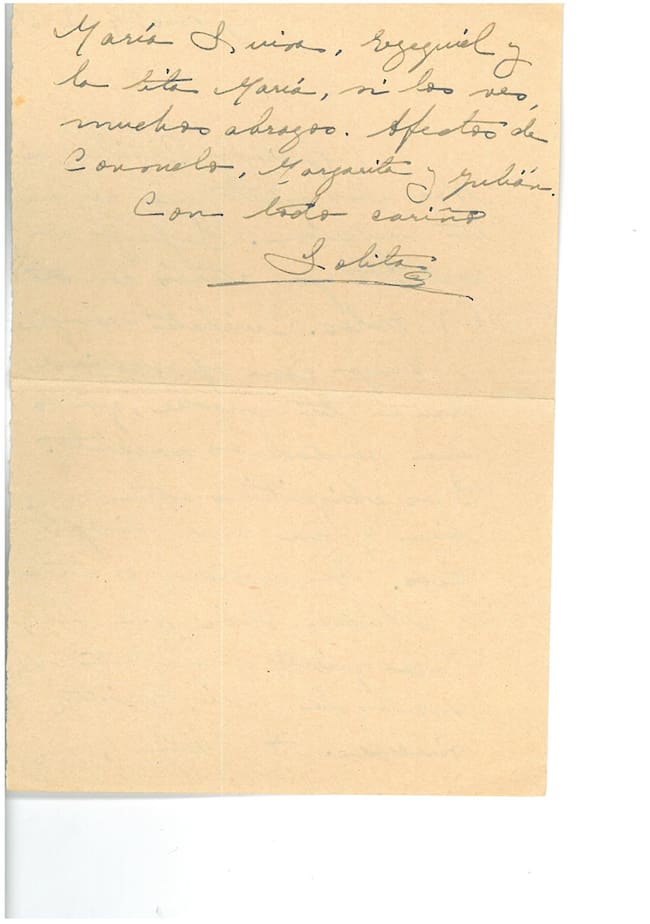 María Luisa, Ezequiel y
la tita María, si los ves,
muchos abrazos. Afectos de
Consuelo, Margarita y Julián.
Con todo cariño
Lolita